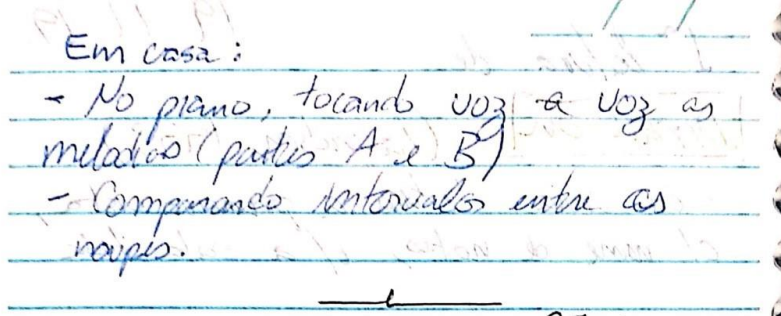 Em casa:
- No piano, tocando voz a voz as
melodias (partes A e B)
- Comparando intervalos entre os
naipes.